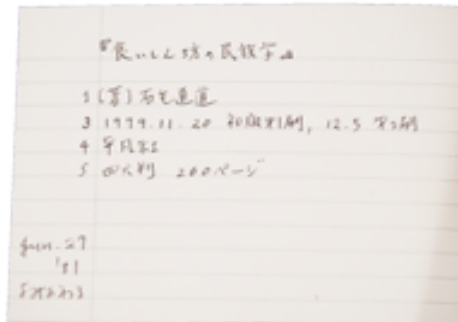 『食いしん坊の民族学』
1 (著) 石毛直道
3 1979.11.20 初版第1刷, 12.5 第2刷
4 平凡社
5 四六判 260ページ
Jun. 29
'81
よみおわる